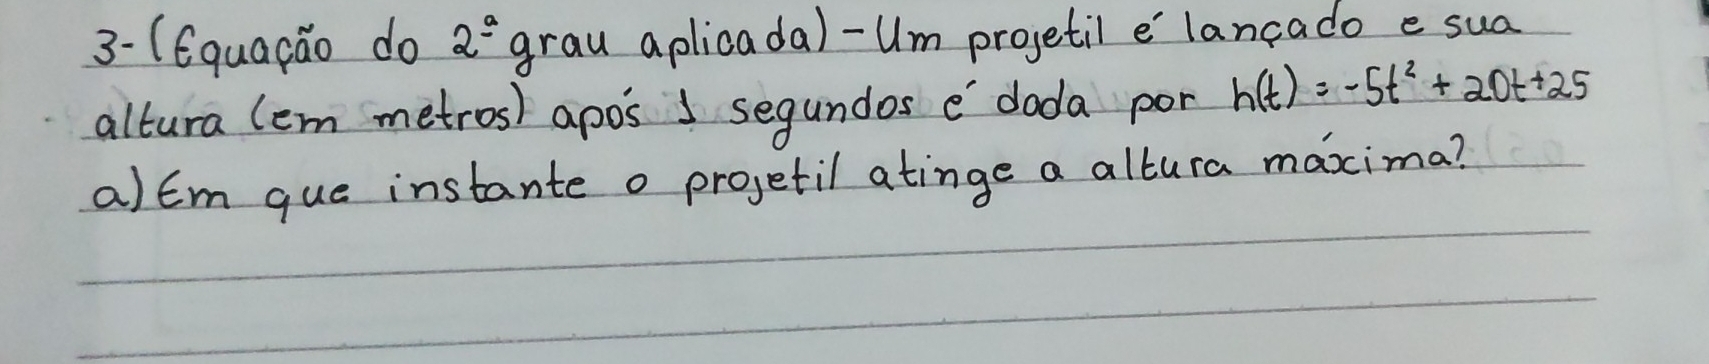 3-(Equação do 2ª grau aplicada) - Um projetil é lançado e sua
altura (em metros) após t segundos é dada por h(t) = -5t² + 20t+25
a) Em que instante o projetil atinge a altura máxima?